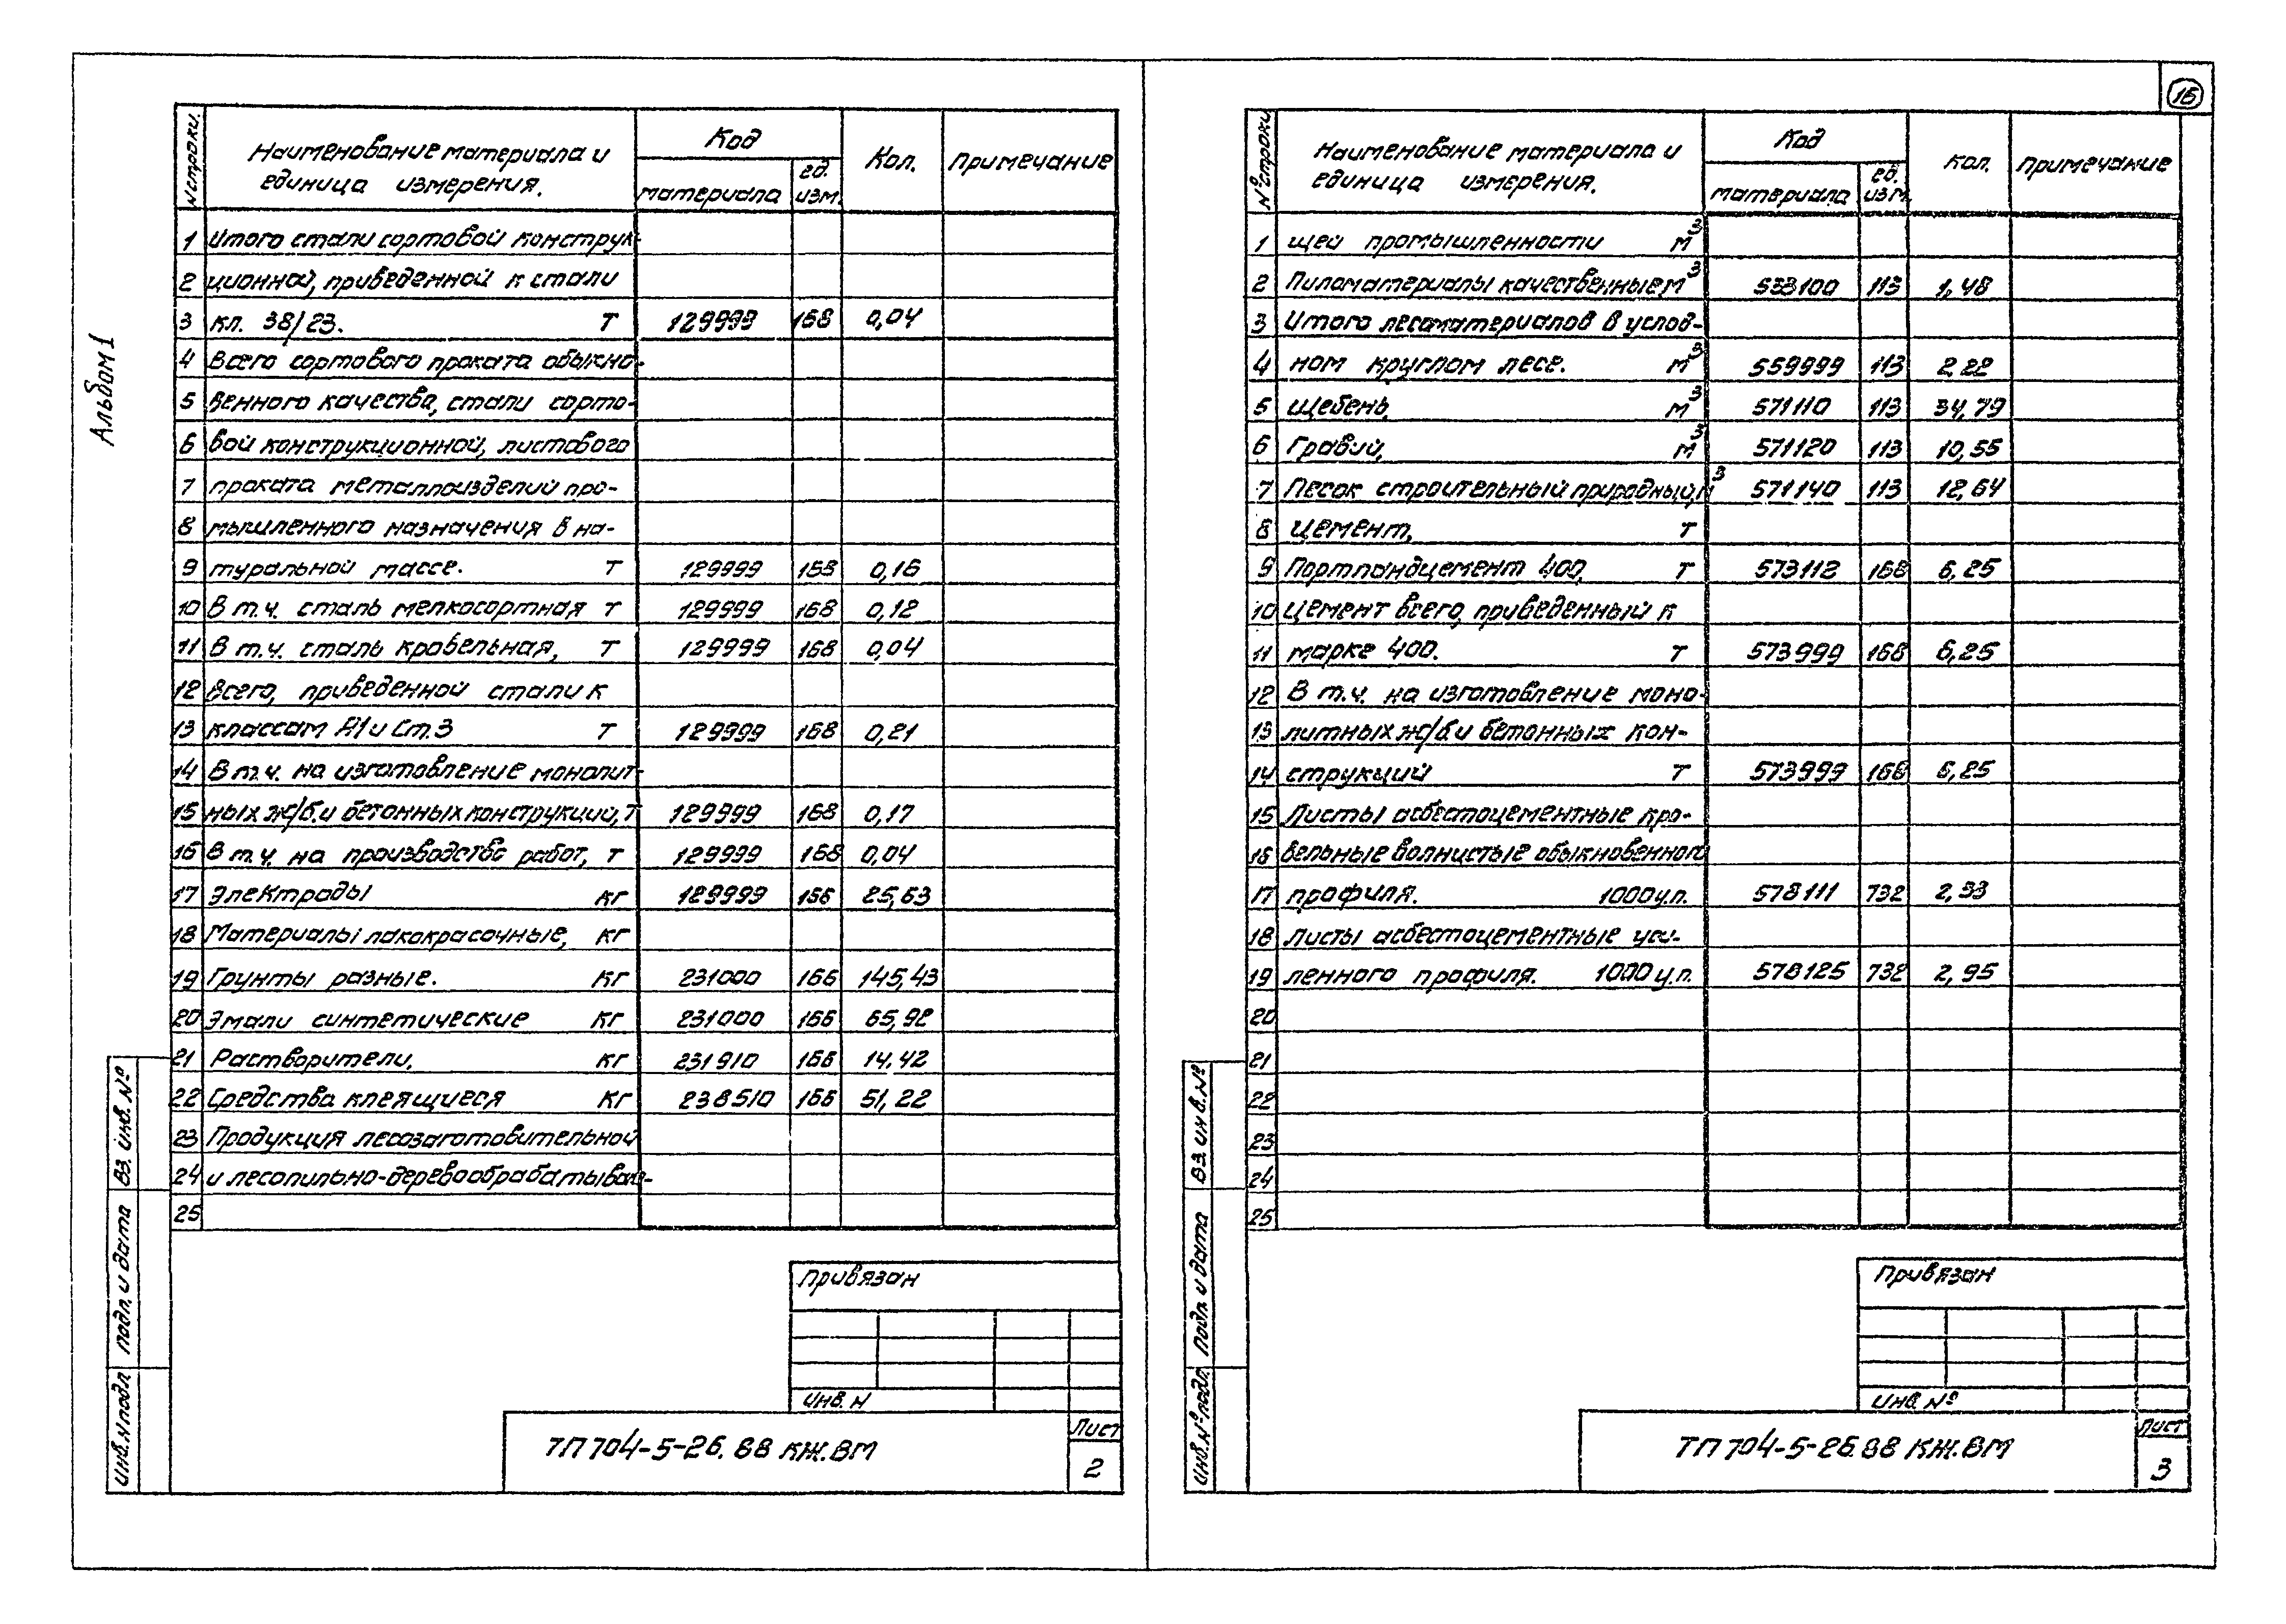 Альбом 1
N строки.
Наименование материала и
единица измерения.
Код
материала
ед.
изм.
Кол.
Примечание
1 Итого стали сортовой конструк-
2 ционной, приведенной к стали
3 кл. 38/23. Т 129999 168 0,04
4 Всего сортового проката обыкно-
5 венного качества, стали сорто-
6 вой конструкционной, листового
7 проката металлоизделий про-
8 мышленного назначения в на-
9 туральной массе. Т 129999 168 0,16
10 В т.ч. сталь мелкосортная т 129999 168 0,12
11 В т.ч. сталь кровельная, Т 129999 168 0,04
12 Всего, приведенной стали к
13 классам А1 и Ст.3 Т 129999 168 0,21
14 В т.ч. на изготовление монолит-
15 ных ж/б. и бетонных конструкций, Т 129999 168 0,17
16 В т.ч. на производство работ, т 129999 168 0,04
17 Электроды кг 129999 166 25,63
18 Материалы лакокрасочные, кг
19 Грунты разные. кг 231000 166 145,43
20 Эмали синтетические кг 231000 166 65,92
21 Растворители, кг 231910 166 14,42
22 Средства клеящиеся кг 238510 166 51,22
23 Продукция лесозаготовительной
24 и лесопильно-деревообрабатываю-
25
Привязан
Инв. N
ТП 704-5-26.88 КЖ.ВМ
Лист
2
Инв. N подл
подп. и дата
Вз. инв. №
16
№ строки
Наименование материала и
единица измерения.
Код
материала
ед.
изм.
Кол.
Примечание
1 щей промышленности м³
2 Пиломатериалы качественные м³ 533100 113 1,48
3 Итого лесоматериалов в услов-
4 ном круглом лесе. м³ 559999 113 2,22
5 Щебень, м³ 571110 113 34,79
6 Гравий, м³ 571120 113 10,55
7 Песок строительный природный, м³ 571140 113 12,64
8 Цемент, Т
9 Портландцемент 400, Т 573112 168 6,25
10 Цемент всего, приведенный к
11 марке 400. Т 573999 168 6,25
12 В т.ч. на изготовление моно-
13 литных ж/б. и бетонных кон-
14 струкций Т 573999 168 6,25
15 Листы асбестоцементные кро-
16 вельные волнистые обыкновенного
17 профиля. 1000 у.п. 578111 732 2,33
18 Листы асбестоцементные уси-
19 ленного профиля. 1000 у.п. 578125 732 2,95
20
21
22
23
24
25
Привязан
Инв. №
ТП 704-5-26.88 КЖ.ВМ
Лист
3
Инв. № подл.
подп. и дата
Вз. инв. №